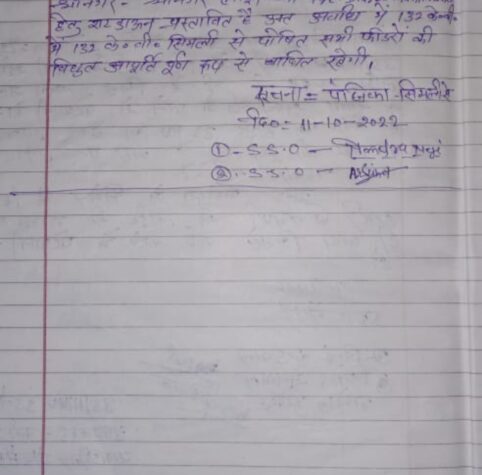 हेतु शटडाऊन प्रस्तावित है उक्त अवधि में 132 के०वी०
में 132 के० वी० सिमली से पोषित सभी फीडरों की
विधुत आपूर्ति पूर्ण रूप से बाधित रहेगी।
सूचना = पंजिका - सिमली से
दि० = 11-10-2022
① - S.S.O -
② - S.S.O -